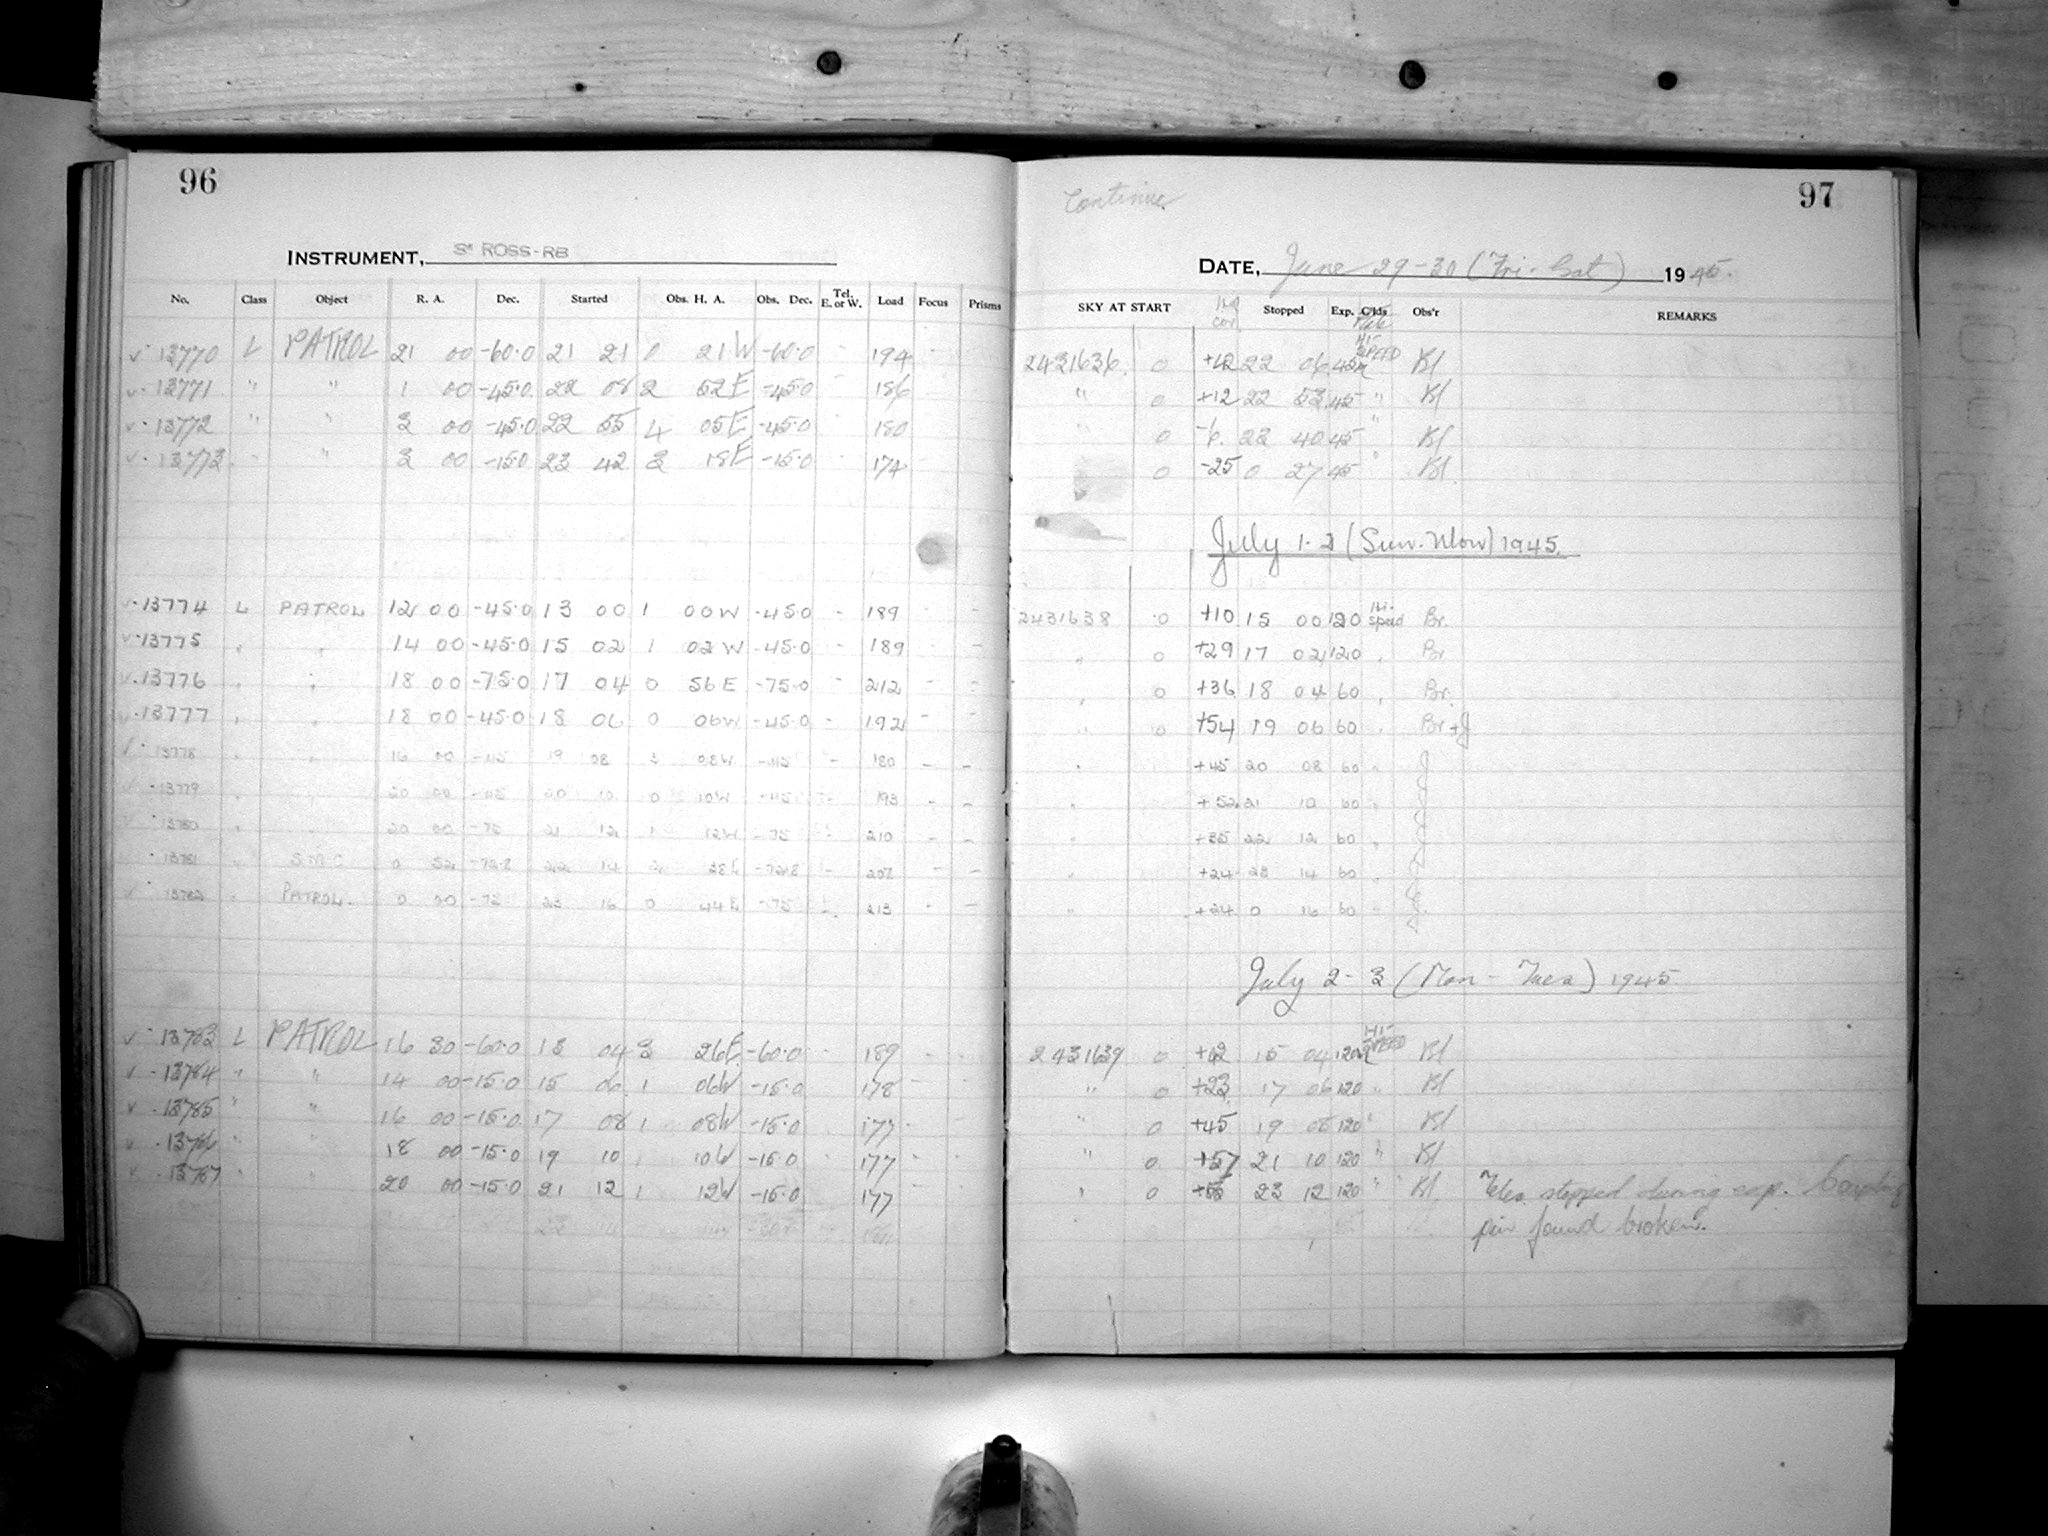 96
INSTRUMENT, 3" ROSS-RB
No. Class Object R. A. Dec. Started Obs. H. A. Obs. Dec. Tel. E. or W. Load Focus Prisms
13770 L PATROL 21 00 -60.0 21 21 0 21W -60.0 - 194 -
13771 " " 1 00 -45.0 22 08 2 52E -45.0 - 186 - -
13772 " " 3 00 -45.0 22 55 4 05E -45.0 180
13773 " " 3 00 -15.0 23 42 3 18E -15.0 174
13774 L PATROL 12 00 -45.0 13 00 1 00W -45.0 - 189 - -
13775 " " 14 00 -45.0 15 02 1 02W -45.0 - 189 - -
13776 " " 18 00 -75.0 17 04 0 56E -75.0 - 212 - -
13777 " " 18 00 -45.0 18 06 0 06W -45.0 - 192 - -
13778 " " 16 00 -45 19 08 3 08W -45 - 180 - -
13779 " " 20 00 -45 20 10 0 10W -45 - 193 - -
13780 " " 20 00 -75 21 12 1 12W -75 - 210 - -
13781 " SMC 0 52 -72.8 22 14 2 38E -72.8 - 207 - -
13782 " PATROL. 0 00 -75 23 16 0 44E -75 - 213 - -
13783 L PATROL 16 30 -60.0 13 04 3 26E -60.0 - 189 - -
13784 " " 14 00 -15.0 15 06 1 06W -15.0 - 178 - -
13785 " " 16 00 -15.0 17 08 1 08W -15.0 177 -
13786 " " 18 00 -15.0 19 10 1 10W -15.0 177 - -
13787 " " 20 00 -15.0 21 12 1 12W -15.0 177 - -
Continue
97
DATE, June 29-30 (Fri-Sat) 1945.
SKY AT START Stopped Exp. C'lds Obs'r REMARKS
2431636. 0 +12 22 06 45m HI-SPEED Bl
" 0 +12 22 53 45 " Bl
" 0 -6. 23 40 45 " Bl
0 -25 0 27 45 " Bl
July 1-2 (Sun-Mon) 1945.
2431638 0 +10 15 00 120 Hi-speed Br.
" 0 +29 17 02 120 " Br
" 0 +36 18 04 60 " Br.
" 0 +54 19 06 60 " Br+J
" +45 20 08 60 " J
" +52 21 10 60 " J
" +35 22 12 60 " J
" +24 23 14 60 " J
" +24 0 16 60 " J
July 2-3 (Mon-Tues) 1945
2431639 0 +12 15 04 120m HI-SPEED Bl
" 0 +23 17 06 120 " Bl
" 0 +45 19 08 120 " Bl
" 0 +57 21 10 120 " Bl
" 0 23 12 120 " Bl Teles. stopped during exp. Coupling
pin found broken.